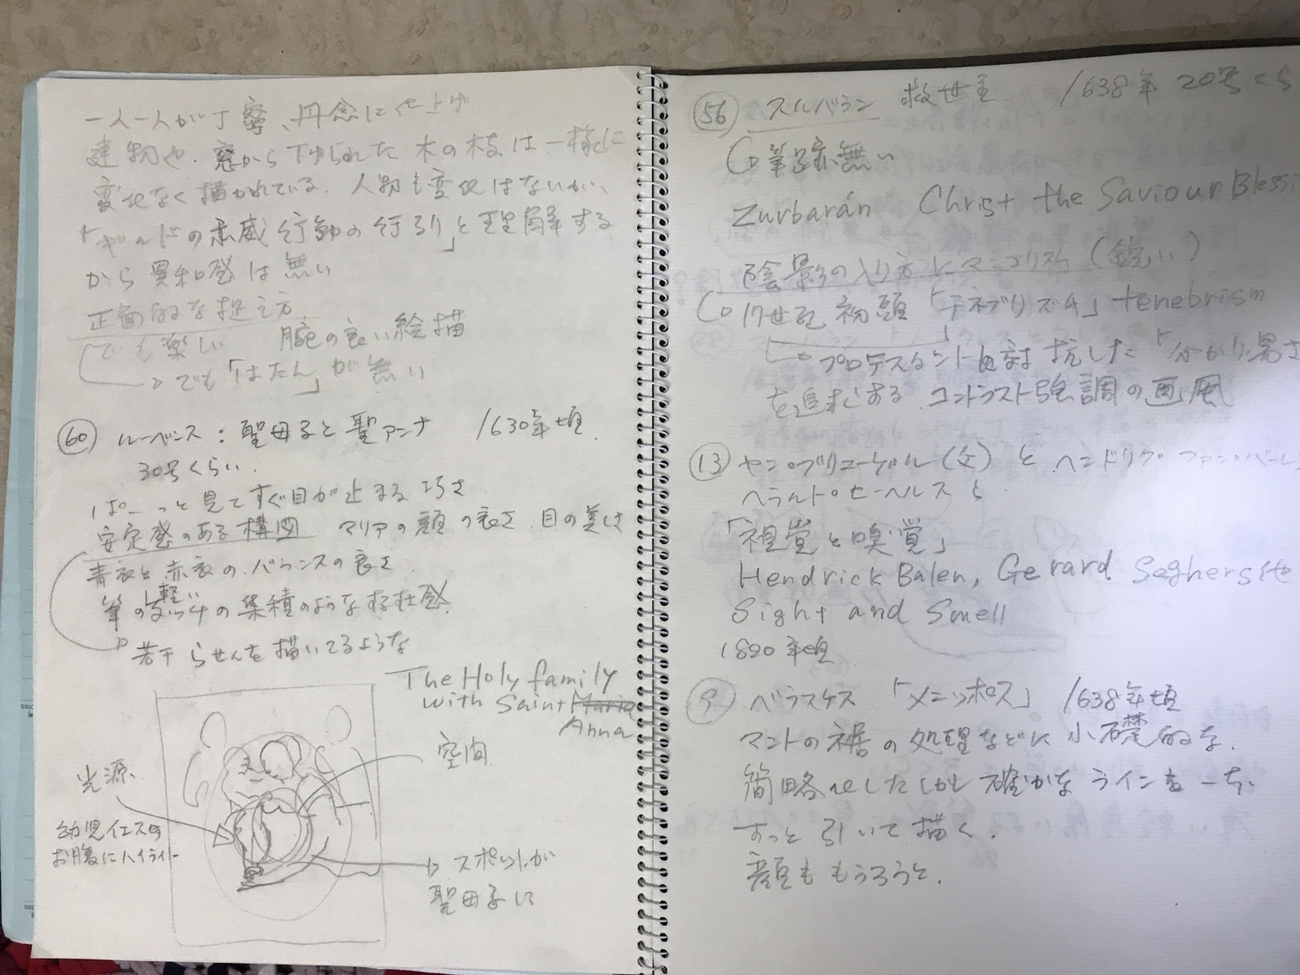 一人一人が丁寧、丹念に仕上げ
建物や、窓から下げられた木の枝は一様に
変化なく描かれている。人物も変化はないが、
「ギルドの示威行動の行列」と理解する
から異和感は無い
正面的な捉え方
でも楽しい 腕の良い絵描
でも「はたん」が無い
60 ルーベンス:聖母子と聖アンナ 1630年頃
30号くらい.
ぱーっと見てすぐ目が止まる巧さ
安定感のある構図 マリアの顔の良さ、目の美しさ
青衣と赤衣のバランスの良さ
筆の軽いタッチの集積のような存在感
若干らせんを描いてるような
The Holy family
with Saint Maria
Anna
空間
光源
幼児イエスの
お腹にハイライト
スポットが
聖母子に
56 スルバラン 救世主 1638年 20号くら
筆跡無い
Zurbarán Christ the Saviour Blessi
陰影の入り方 (鋭い)
17世紀初頭「テネブリズム」tenebrism
プロテスタントに対抗した「分かり易さ
を追求する コントラスト強調の画風
13 ヤン・ブリューゲル(父)と ヘンドリク・ファン・バーレ
ヘラルト・セーヘルスら
「視覚と嗅覚」
Hendrick Balen, Gerard Seghers
Sight and Smell
1820年頃
9 ベラスケス「メニッポス」 1638年頃
マントの裾の処理などに
簡略化したしかし確かなラインを一本、
すっと引いて描く.
顔ももうろうと.